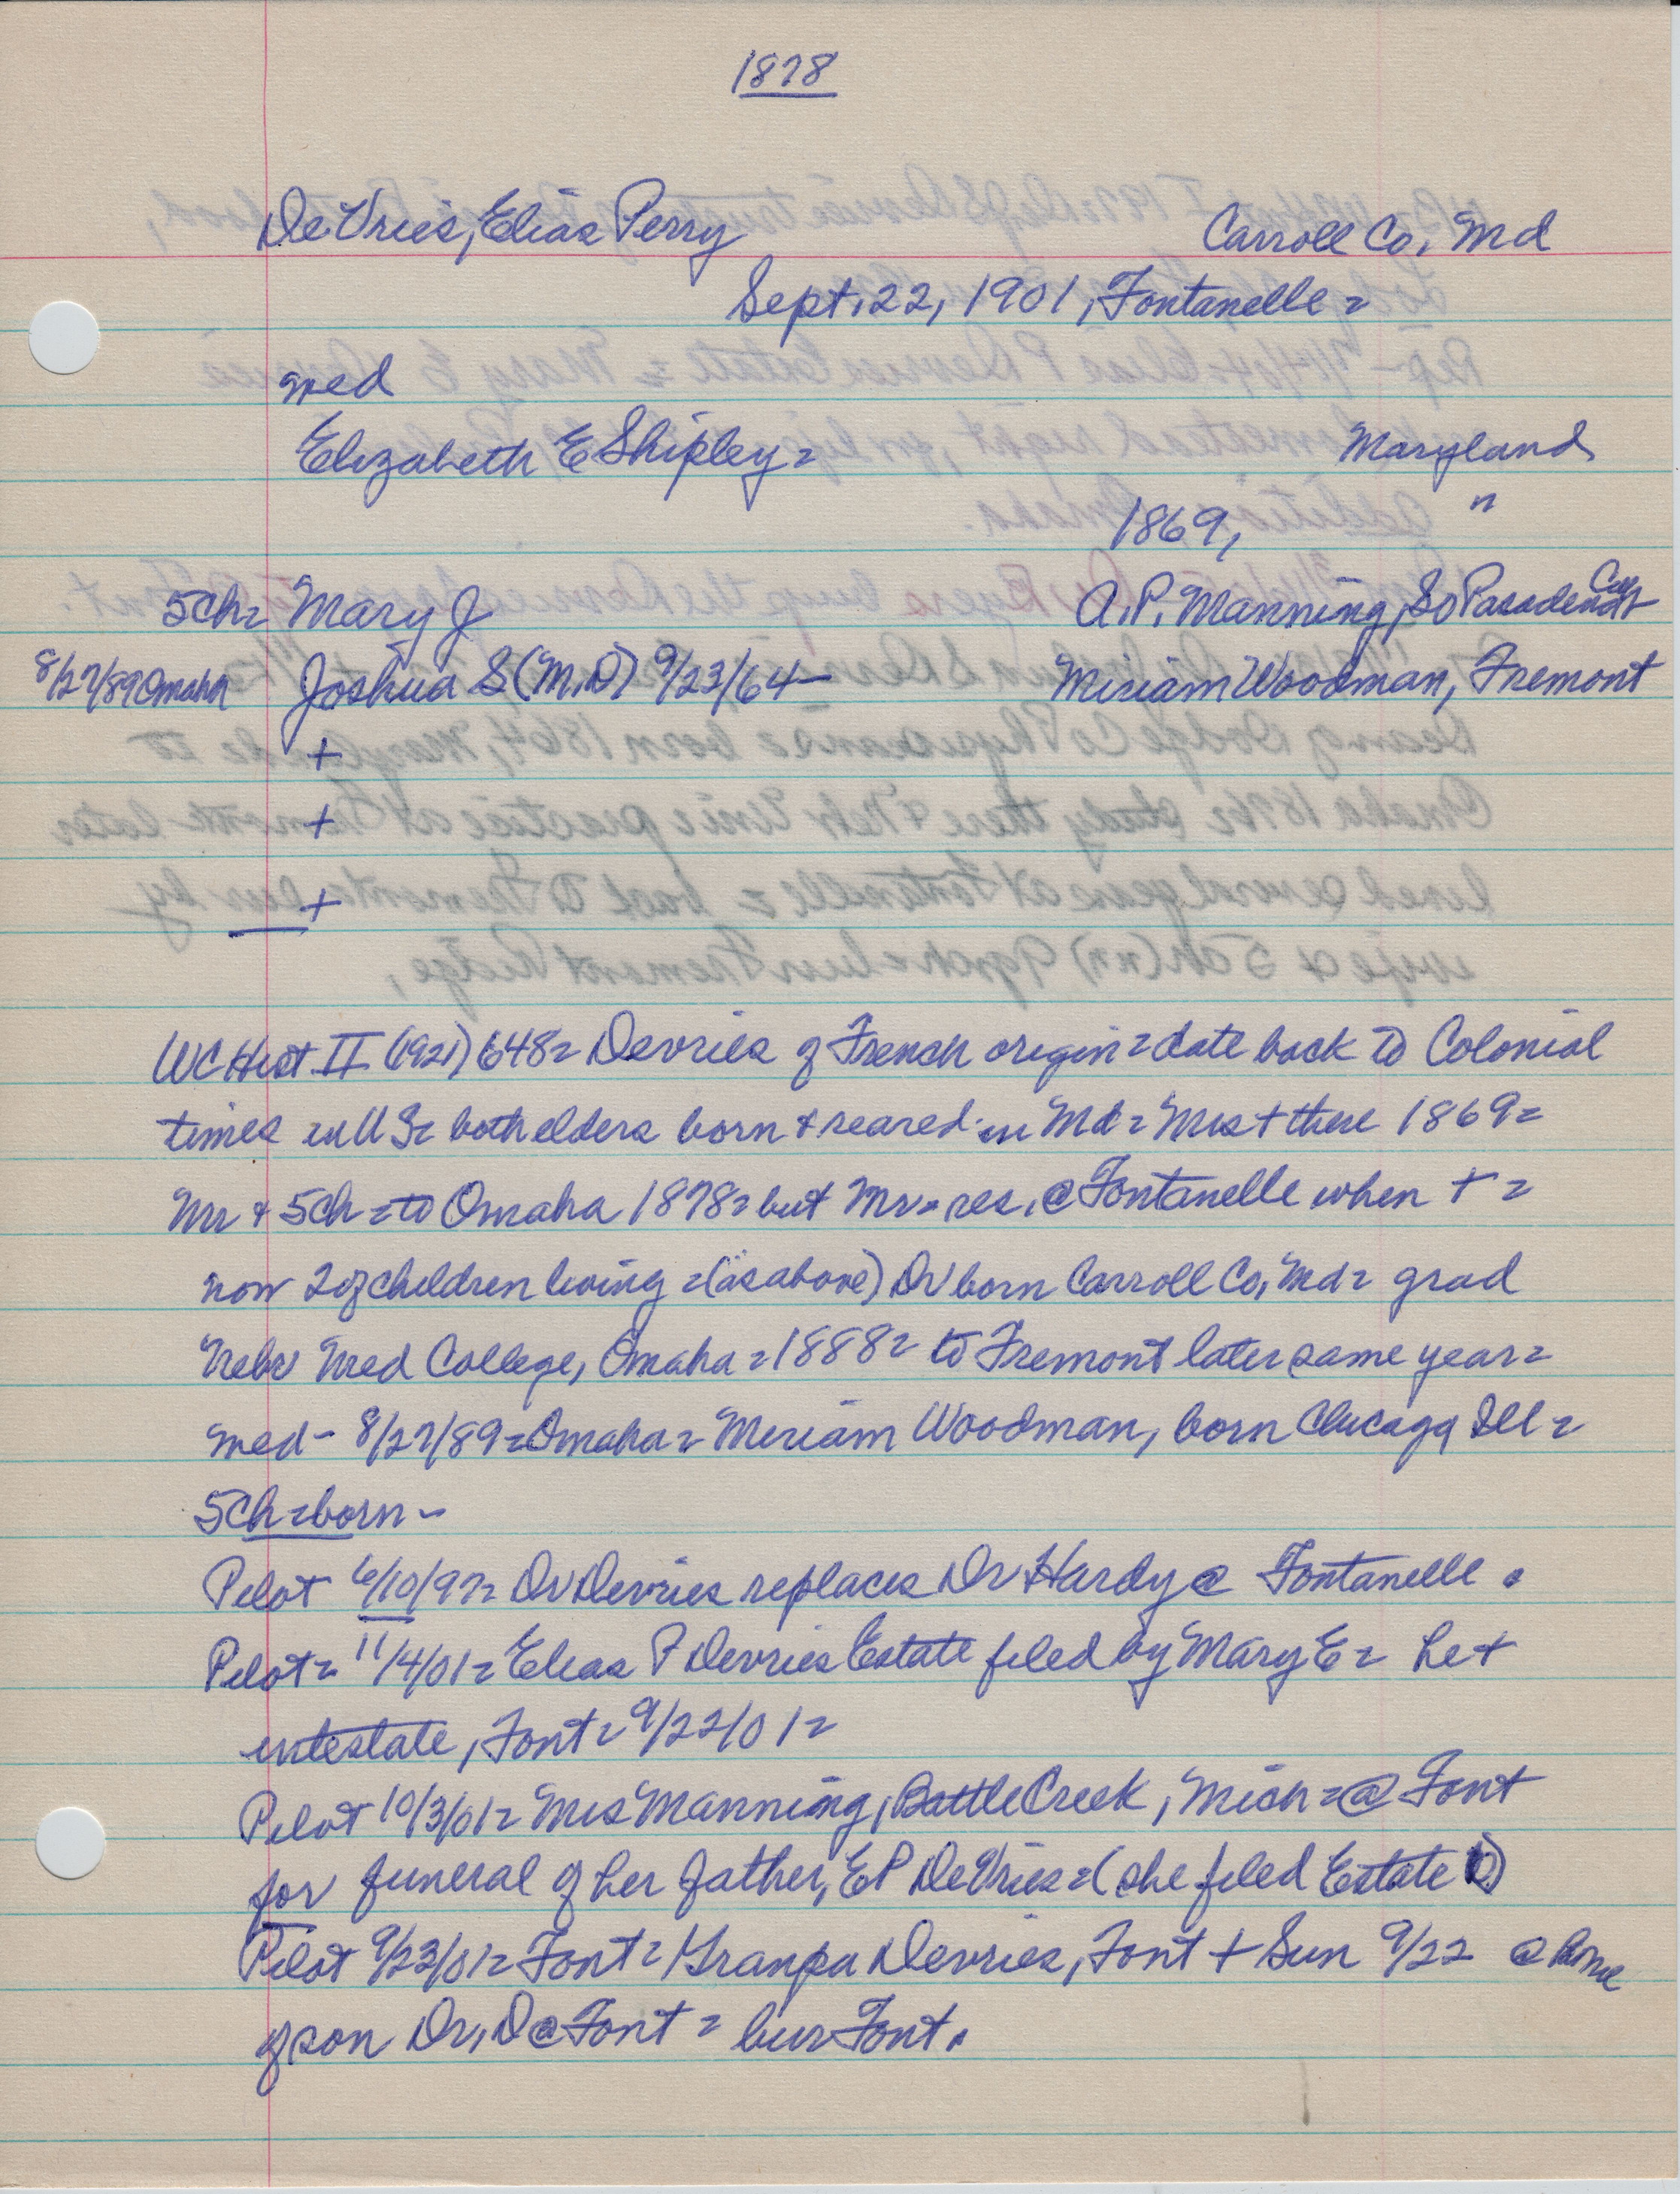 1878
DeVries, Elias Perry Carroll Co, Md
Sept. 22, 1901, Fontanelle =
med
Elizabeth E Shipley = Maryland
1869, "
5Ch= Mary J A.P. Manning, So Pasadena Calif
8/27/89 Omaha Joshua S (M.D) 9/23/64 — Miriam Woodman, Fremont
+
+
+
WC Hist II (1921) 648= Devries of French origin = date back to Colonial
times in U S= both elders born & reared in Md = Mrs + there 1869=
Mr & 5Ch = to Omaha 1878= but Mr = res. @ Fontanelle when + =
now 2 of children living = (as above) Dr born Carroll Co, Md = grad
Nebr Med College, Omaha = 1888= to Fremont later same year =
med - 8/27/89 = Omaha = Miriam Woodman, born Chicago Ill =
5Ch = born -
Pilot 6/10/97= Dr Devries replaces Dr Hardy @ Fontanelle.
Pilot = 11/4/01 = Elias P Devries Estate filed by Mary E = he +
intestate, Font = 9/22/01 =
Pilot 10/3/01 = Mrs Manning, Battle Creek, Mich = @ Font
for funeral of her father, EP DeVries = (she filed Estate )
Pilot 9/23/01 = Font = Granpa Devries, Font + Sun 9/22 @ home
of son Dr. D @ Font = bur Font.